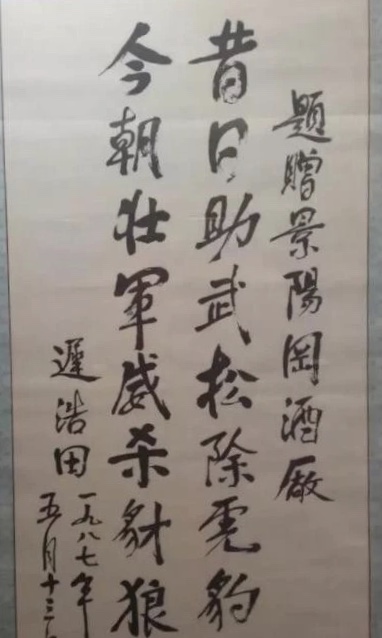 題贈景陽岡酒厰
昔日助武松除虎豹
今朝壮軍威杀豺狼
遲浩田
一九八七年
五月十三